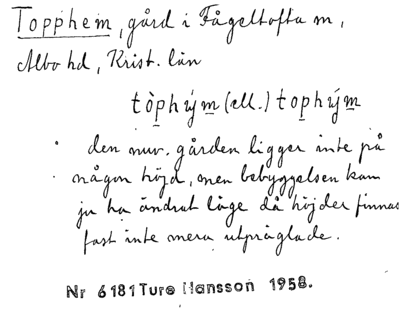 Topphem, gård i Fågeltofta sn,
Albo hd, Krist. län
tòp̱hým̱ (ell.) top̱hým̱
den nuv. gården ligger inte på
någon höjd, men bebyggelsen kan
ju ha ändrat läge då höjder finnas
fast inte mera utpräglade.
Nr 6181 Ture Hansson 1958.